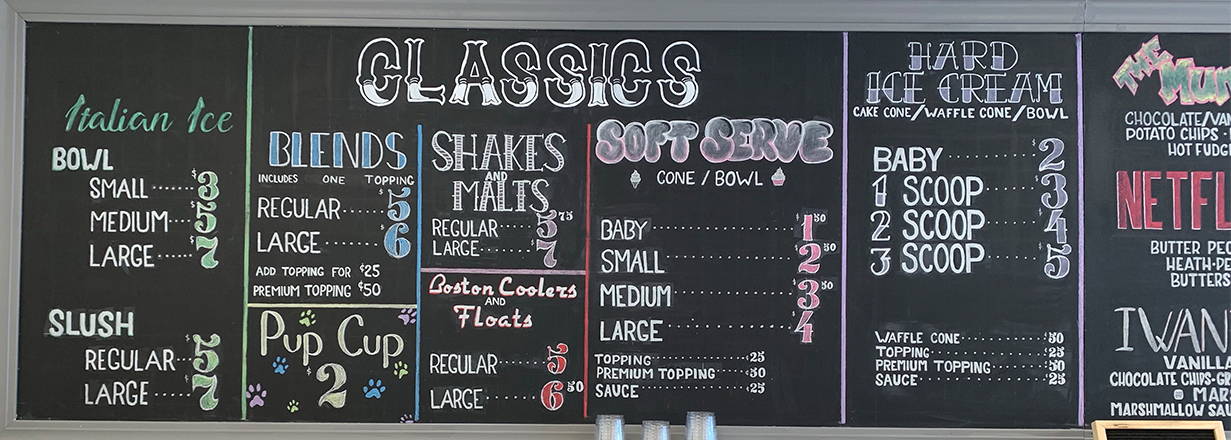 Italian Ice
BOWL
SMALL $3
MEDIUM $5
LARGE $7
SLUSH
REGULAR $5
LARGE $7
CLASSICS
BLENDS
INCLUDES ONE TOPPING
REGULAR $5
LARGE $6
ADD TOPPING FOR $25
PREMIUM TOPPING $50
Pup Cup
$2
SHAKES
AND
MALTS
REGULAR $5 75
LARGE $7
Boston Coolers
AND
Floats
REGULAR $5
LARGE $6 50
SOFT SERVE
CONE / BOWL
BABY $1 50
SMALL $2 50
MEDIUM $3 50
LARGE $4
TOPPING $25
PREMIUM TOPPING $50
SAUCE $25
HARD
ICE CREAM
CAKE CONE/WAFFLE CONE/BOWL
BABY $2
1 SCOOP $3
2 SCOOP $4
3 SCOOP $5
WAFFLE CONE $50
TOPPING $25
PREMIUM TOPPING $50
SAUCE $25
THE
CHOCOLATE/VAN
POTATO CHIPS
HOT FUDG
NETFL
BUTTER PE
HEATH-PE
BUTTERS
I WAN
VANILLA
CHOCOLATE CHIPS-
MAR
MARSHMALLOW SAU